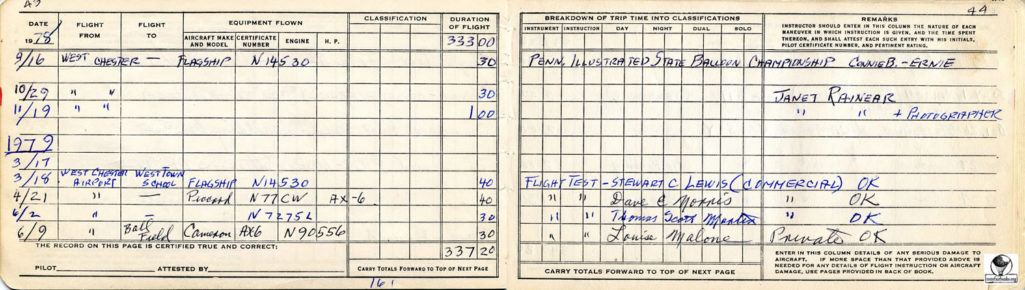 44
DATE
FLIGHT FROM
FLIGHT TO
EQUIPMENT FLOWN
AIRCRAFT MAKE AND MODEL
CERTIFICATE NUMBER
ENGINE
H. P.
CLASSIFICATION
DURATION OF FLIGHT
1978
333 00
9/16 WEST CHESTER — FLAGSHIP N14530 30
10/29 " " 30
11/19 " " 1.00
1979
3/17
3/18 WEST CHESTER AIRPORT WESTTOWN SCHOOL FLAGSHIP N14530 40
4/21 " — Piccard N77CW AX-6 40
6/2 " — N7275L 30
6/9 " Ball Field Cameron AX6 N90556 30
THE RECORD ON THIS PAGE IS CERTIFIED TRUE AND CORRECT:
337 20
PILOT ATTESTED BY
CARRY TOTALS FORWARD TO TOP OF NEXT PAGE
BREAKDOWN OF TRIP TIME INTO CLASSIFICATIONS
INSTRUMENT
INSTRUCTION
DAY
NIGHT
DUAL
SOLO
REMARKS
INSTRUCTOR SHOULD ENTER IN THIS COLUMN THE NATURE OF EACH
MANEUVER IN WHICH INSTRUCTION IS GIVEN, AND THE TIME SPENT
THEREON, AND SHALL ATTEST EACH SUCH ENTRY WITH HIS INITIALS,
PILOT CERTIFICATE NUMBER, AND PERTINENT RATING.
PENN. ILLUSTRATED STATE BALLOON CHAMPIONSHIP CONNIE B. - ERNIE
JANET RAINEAR
" " + PHOTOGRAPHER
FLIGHT TEST - STEWART C LEWIS (COMMERCIAL) OK
" " Dave E Morris " OK
" " Thomas Scott Martin " OK
" " Louise Malone Private OK
CARRY TOTALS FORWARD TO TOP OF NEXT PAGE
ENTER IN THIS COLUMN DETAILS OF ANY SERIOUS DAMAGE TO
AIRCRAFT. IF MORE SPACE THAN THAT PROVIDED ABOVE IS
NEEDED FOR ANY DETAILS OF FLIGHT INSTRUCTION OR AIRCRAFT
DAMAGE, USE PAGES PROVIDED IN BACK OF BOOK.